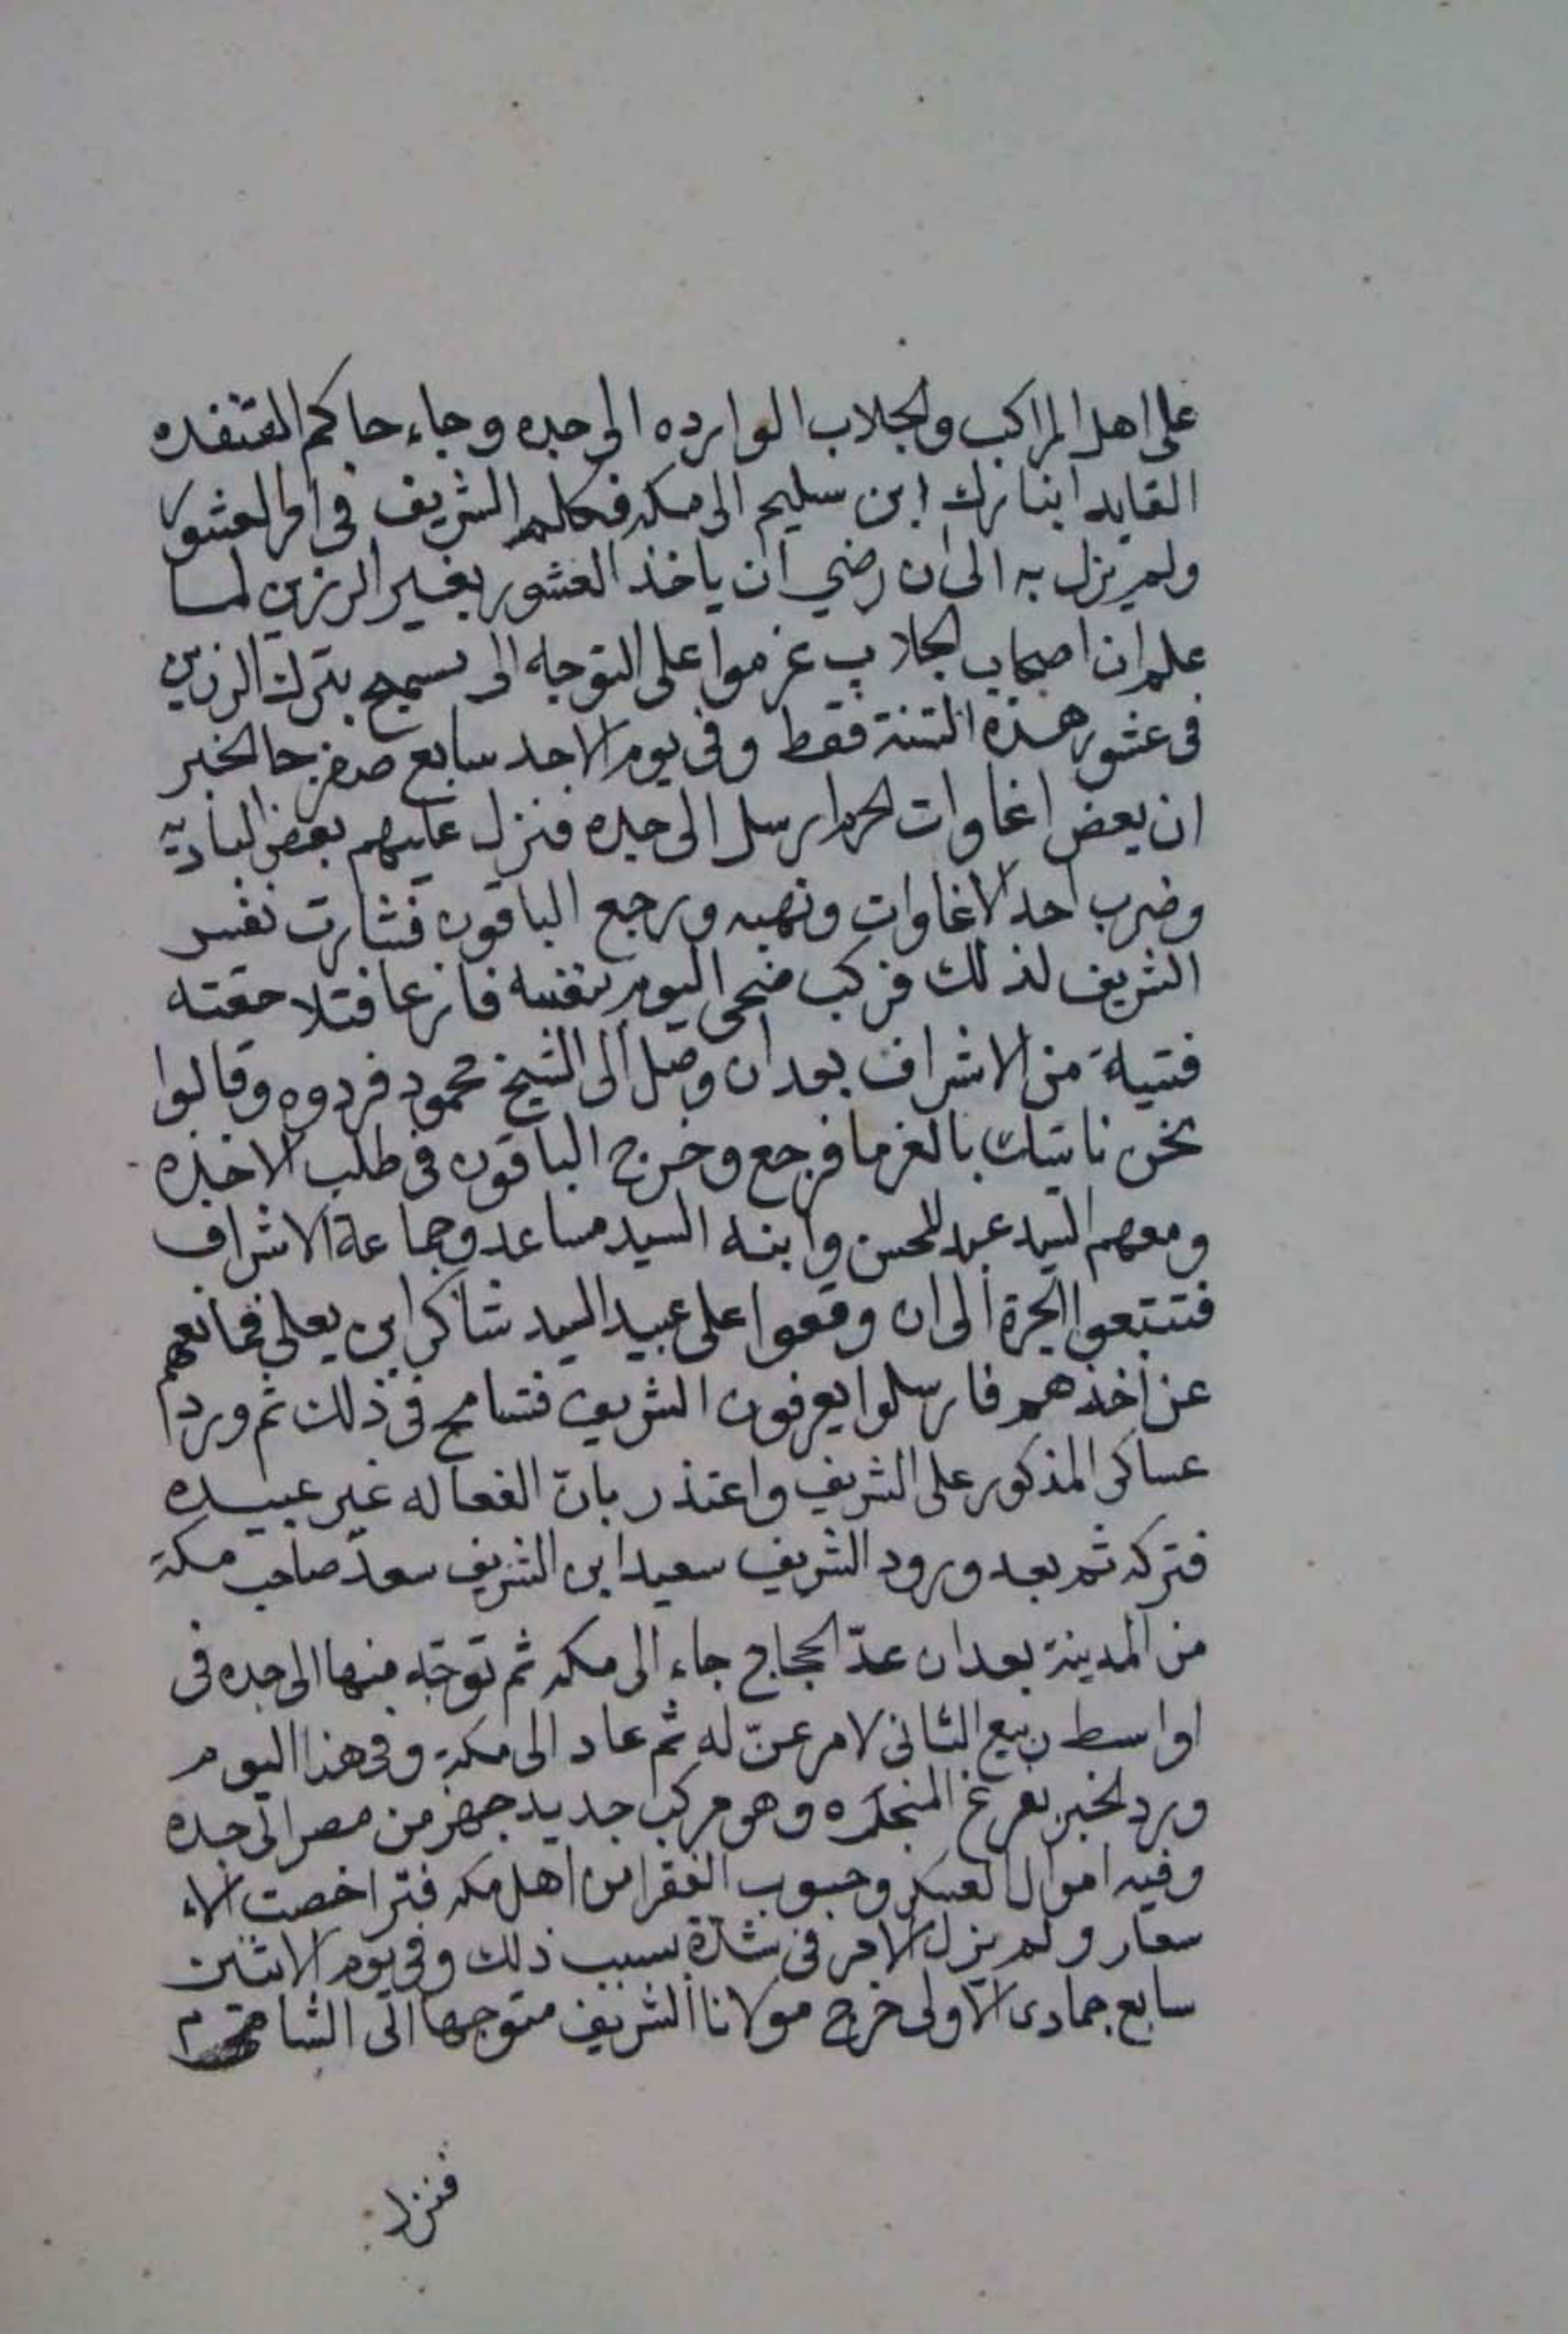 على اهل المراكب والجلاب الوارده الى جده وجاء حاكم القنفده
القايد ابن ترك ابن سليم الى مكه فكلم الشريف فى امر العشور
ولم يزل به الى ان رضي ان ياخذ العشور بغير الرزين لما
علم ان اصحاب الجلاب عزموا على التوجه الى بترك الرزين
فى عشور هذه السنة فقط وفى يوم الاحد سابع صفر جا الخبر
ان بعض اغاوات الحرم ارسل الى جده فنزل عليهم بعض البادية
وضرب احد الاغاوات ونهبه ورجع الباقون فثارت نفس
الشريف لذلك فركب ضحى اليوم بنفسه فازعا فتلاحقته
فتية من الاشراف بعد ان وصل الى الشيخ محمود فردوه وقالوا
نحن ناتيك بالغرما فرجع وخرج الباقون فى طلب الاخذه
ومعهم السيد عبد المحسن وابنه السيد مساعد وجماعة الاشراف
فتتبعوا الجرة الى ان وقعوا على عبيد السيد شاكر ابن يعلى فمانعهم
عن اخذهم فارسلوا يعرفون الشريف فتسامح فى ذلك ثم ورد
عساكر المذكور على الشريف واعتذر بان الفعاله غير عبيده
فتركه ثم بعد ورود الشريف سعيد ابن الشريف سعد صاحب مكة
من المدينة بعد ان عدّ الحجاج جاء الى مكه ثم توجّه منها الى جده فى
اواسط ربيع الثانى لامر عنّ له ثم عاد الى مكة وفى هذا اليوم
ورد الخبر بغرغ المنجدره وهو مركب جديد جهز من مصر الى جده
وفيه اموال العسكر وحبوب الفقرا من اهل مكه فتراخصت الا
سعار ولم يزل الامر فى شدّة بسبب ذلك وفى يوم الاثنين
سابع جمادى الاولى خرج مولانا الشريف متوجها الى الشام
فنزل